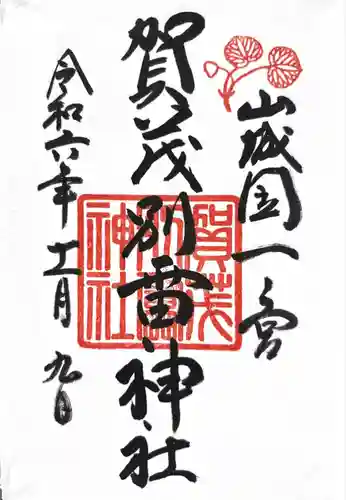 山城国一宮
賀茂別雷神社
賀茂別雷神社
令和六年十一月九日